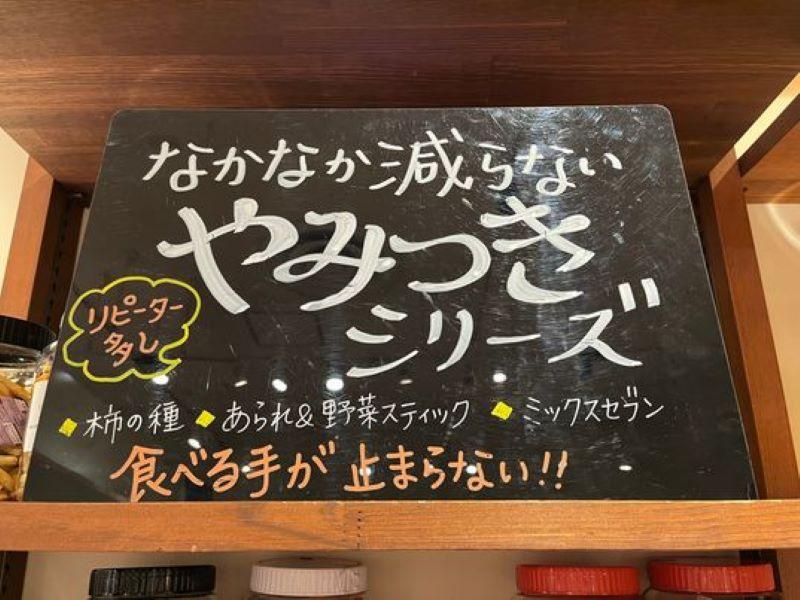 なかなか減らない
やみつき
シリーズ
リピーター
多タレ
柿の種 あられ&野菜スティック ミックスセブン
食べる手が止まらない!!